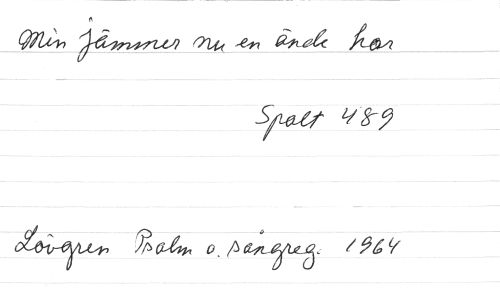 Min jämmer nu en ände har
Spalt 489
Lövgren Psalm o. sångreg. 1964